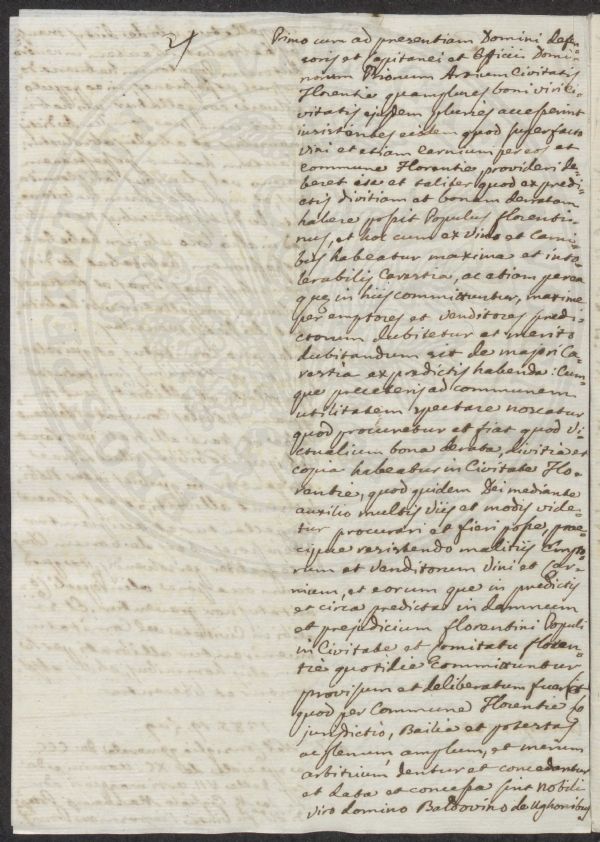 Primo cum ad presentiam Domini Defen-
soris et Capitanei et Officii Domi-
norum Priorum Artium Civitatis
Florentie quamplures boni viri Ci-
vitatis ejusdem pluries accesserint
insistentes eisdem quod super facto
vini et etiam carnium per eos et
commune Florentie provideri de-
beret ita et taliter quod ex predi-
ctis divitiam et bonam derratam
habere possit Populus florenti-
nus, et hoc cum ex vino et Carni-
bus habeatur maxima et into-
lerabilis Carestia, ac etiam per ea
que in hiis committuntur, maxime
per emptores et venditores predi-
ctorum dubitetur et merito
dubitandum sit de majori Ca-
restia ex predictis habenda: Cum-
que pre ceteris ad communem
utilitatem spectare noscatur
quod procuretur et fiat quod Vi-
ctualium bona derata, divitia et
copia habeatur in Civitate Flo-
rentie, quod quidem Dei mediante
auxilio multis viis et modis vide-
tur procurari et fieri posse, prae-
cipue resistendo malitiis Empto-
rum et Venditorum Vini et Car-
nium, et eorum que in predictis
et circa predicta in damnum
et prejudicium florentini Populi
in Civitate et Comitatu floren-
tie quotidie Committuntur
provisum et deliberatum fuerit
quod per Commune Florentie
jurisdictio, Bailia et potestas
ac plenum amplum, et merum
arbitrium dentur et concedantur
et data et concessa sint nobili
viro Domino Baldovino de Ughonibus